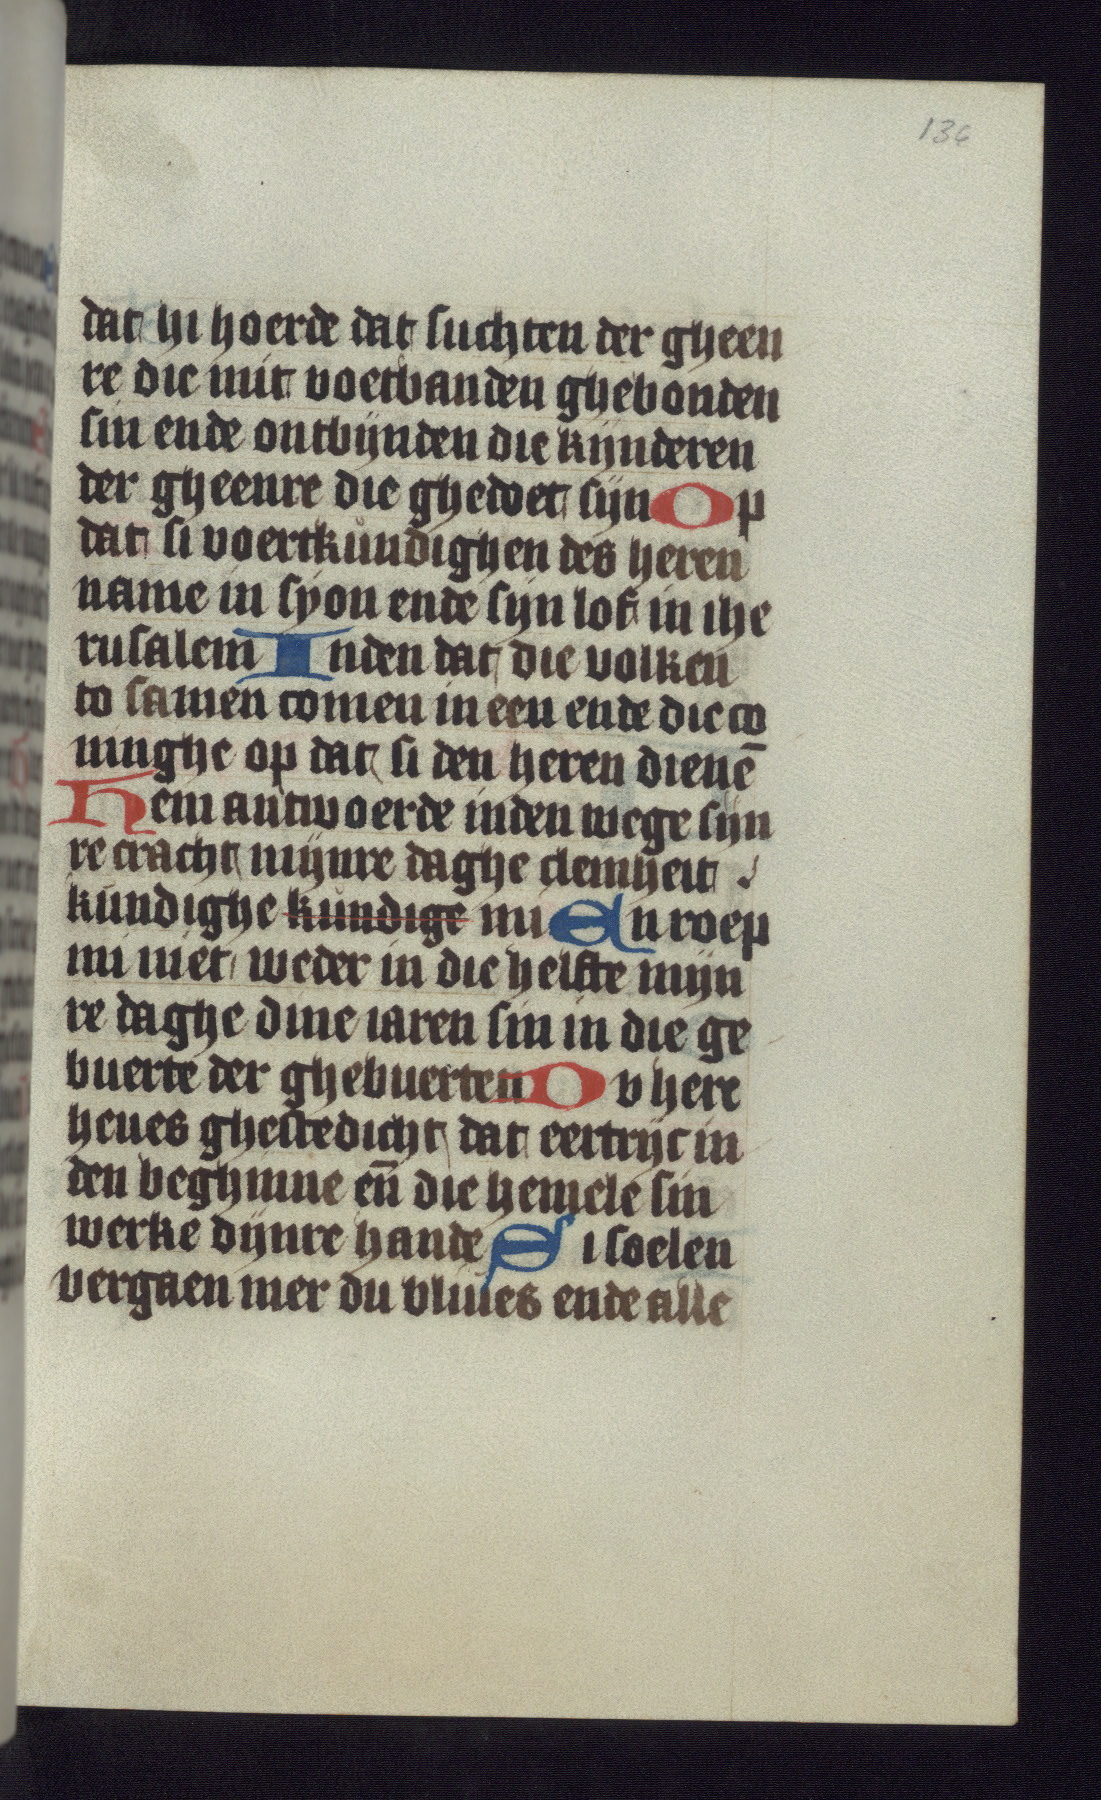 136
dat hi hoerde dat suchten der gheen
re die mit voetbanden ghebonden
sin ende ontbijnden die kijnderen
der gheenre die ghedoet sijn Op
dat si voertkundighen des heren
name in syon ende sijn lof in ihe
rusalem Inden dat die volken
to samen comen in een ende die co
ninghe op dat si den heren dienē
Hem antwoerde inden wege sijn
re cracht mijnre daghe cleinheit
kundighe kundige mi En roep
mi niet weder in die helfte mijn
re daghe dine iaren sin in die ge
buerte der ghebuerten Ov here
heues ghestedicht dat eertrijc in
den beghinne eñ die hemele sin
werke dijnre hande Si soelen
vergaen mer du bliues ende alle